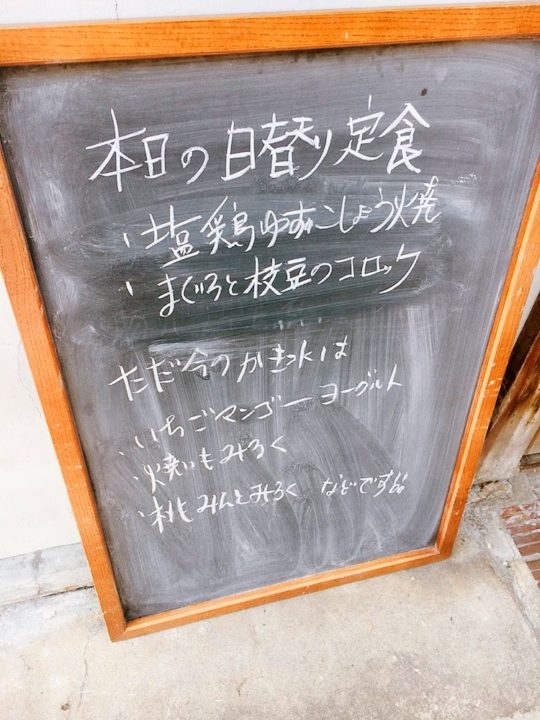 本日の日替り定食
・塩鶏ゆずこしょう焼
・まぐろと枝豆のコロッケ
ただ今のかき氷は
・いちごマンゴーヨーグルト
・焼いもみるく
・桃とみんとみるく などです